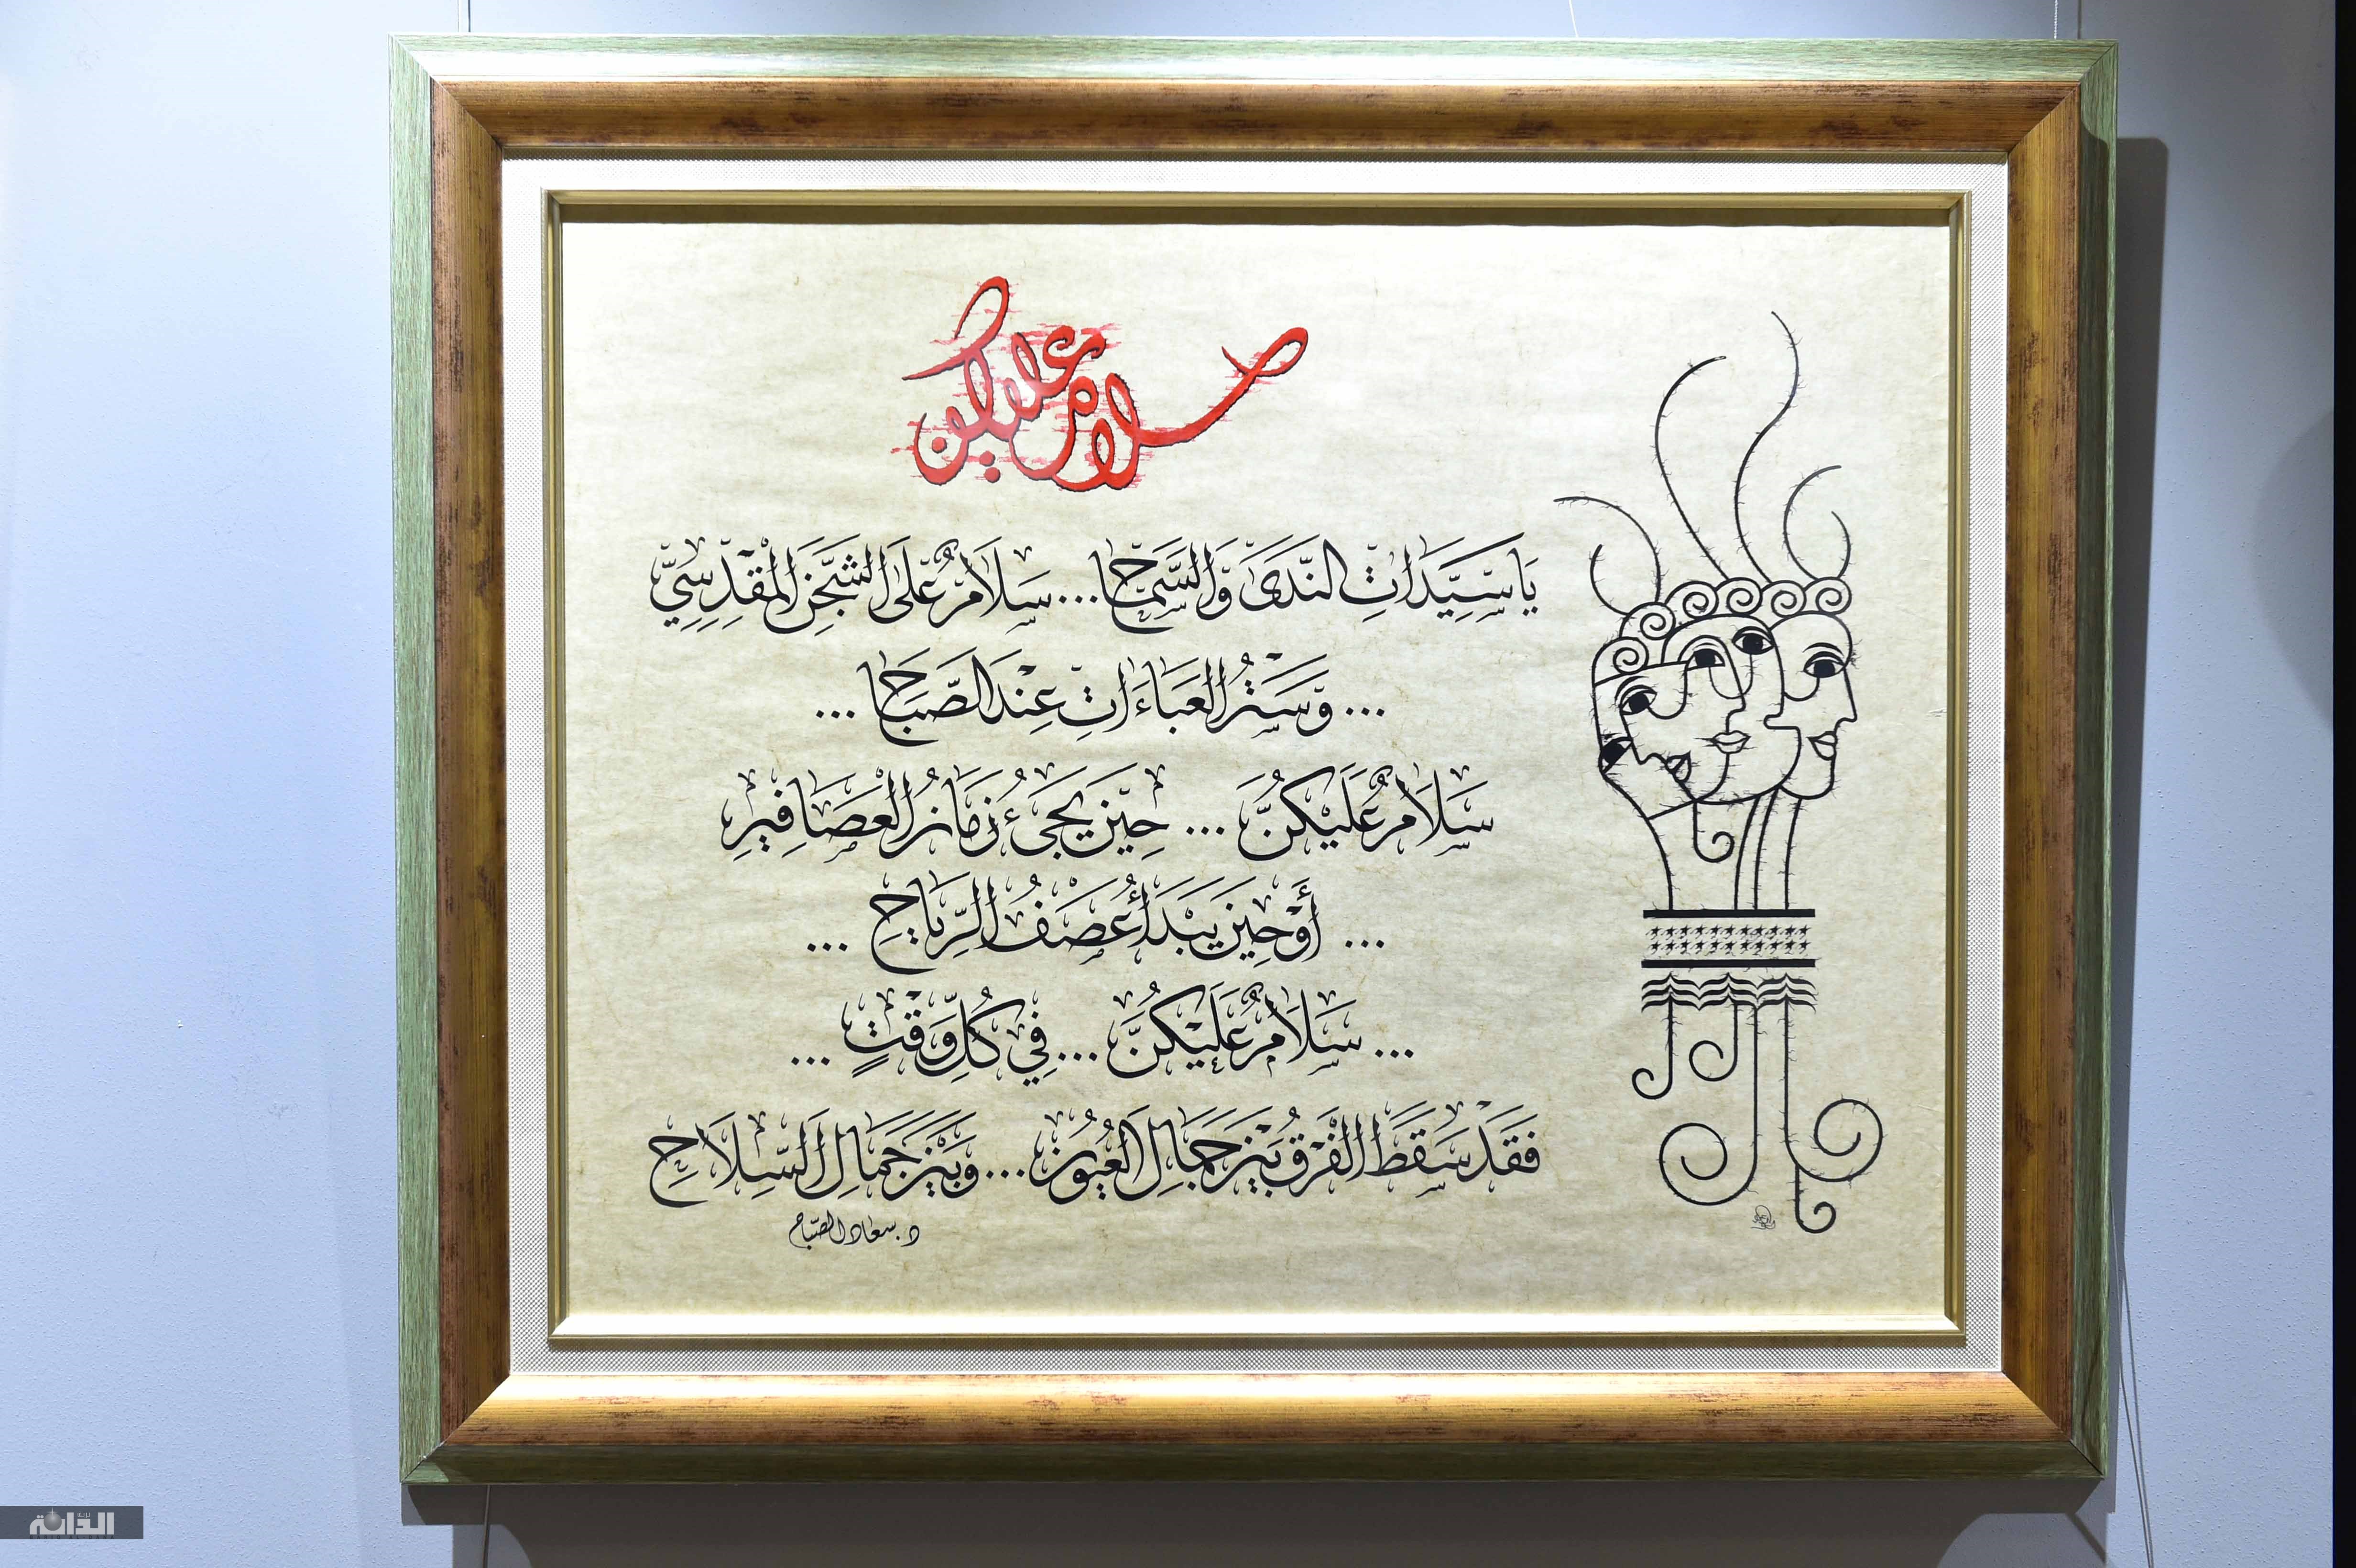 سلام عليكن
يَا سَيِّدَاتِ النَّدَىٰ وَالسَّمَاحِ ... سَلَامٌ عَلَى الشَّجَنِ الْمَقْدِسِيِّ
... وَسِتْرِ العَبَاءَاتِ عِنْدَ الصَّبَاحِ ...
سَلَامٌ عَلَيْكُنَّ ... حِيْنَ يَجِيءُ زَمَانُ الْعَصَافِيْرِ
... أَوْ حِيْنَ يَبْدَأُ عَصْفُ الرِّيَاحِ ...
... سَلَامٌ عَلَيْكُنَّ ... فِي كُلِّ وَقْتٍ ...
فَقَدْ سَقَطَ الْفَرْقُ بَيْنَ جَمَالِ الْعُيُونِ ... وَبَيْنَ جَمَالِ السِّلَاحِ
د. سعاد الصباح
الدانة